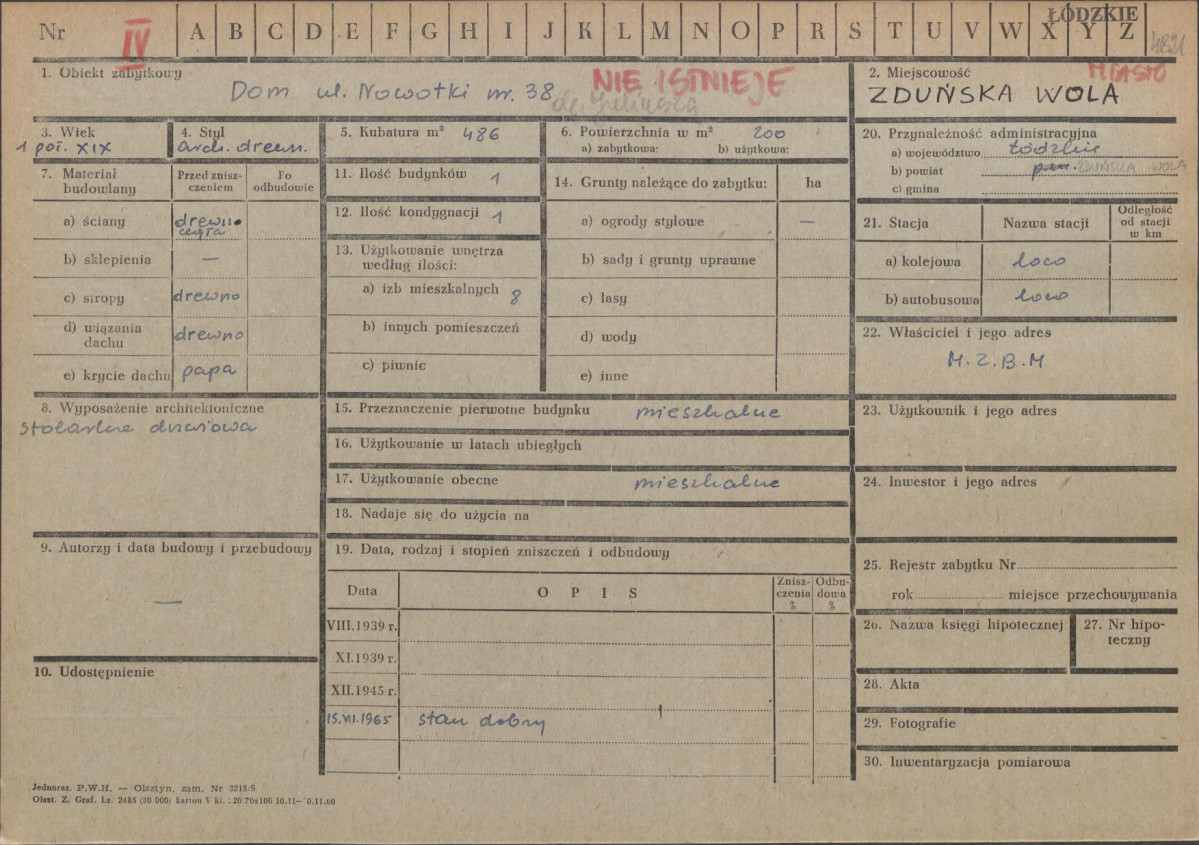 Nr IV A B C D E F G H I J K L M N O P R S T U V W X Y Z ŁÓDZKIE
1. Obiekt zabytkowy
Dom ul. Nowotki nr. 38
NIE ISTNIEJE
2. Miejscowość MIASTO
ZDUŃSKA WOLA
3. Wiek
1 poł. XIX
4. Styl
arch. drewn.
5. Kubatura m³ 486
6. Powierzchnia w m² 200
a) zabytkowa: b) użytkowa:
7. Materiał budowlany
Przed zniszczeniem
Po odbudowie
a) ściany drewno cegła
b) sklepienia —
c) stropy drewno
d) wiązania dachu drewno
e) krycie dachu papa
8. Wyposażenie architektoniczne
stolarka drzwiowa
9. Autorzy i data budowy i przebudowy
—
10. Udostępnienie
11. Ilość budynków 1
12. Ilość kondygnacji 1
13. Użytkowanie wnętrza według ilości:
a) izb mieszkalnych 8
b) innych pomieszczeń
c) piwnic
14. Grunty należące do zabytku: ha
a) ogrody stylowe —
b) sady i grunty uprawne
c) lasy
d) wody
e) inne
15. Przeznaczenie pierwotne budynku mieszkalne
16. Użytkowanie w latach ubiegłych
17. Użytkowanie obecne mieszkalne
18. Nadaje się do użycia na
19. Data, rodzaj i stopień zniszczeń i odbudowy
Data OPIS Zniszczenia % Odbudowa %
VIII.1939 r.
XI.1939 r.
XII.1945 r.
15.VII.1965 stan dobry
20. Przynależność administracyjna
a) województwo Łódzkie
b) powiat ZDUŃSKA WOLA
c) gmina
21. Stacja Nazwa stacji Odległość od stacji w km
a) kolejowa loco
b) autobusowa loco
22. Właściciel i jego adres
M.Z.B.M
23. Użytkownik i jego adres
24. Inwestor i jego adres
25. Rejestr zabytku Nr
rok miejsce przechowywania
26. Nazwa księgi hipotecznej
27. Nr hipoteczny
28. Akta
29. Fotografie
30. Inwentaryzacja pomiarowa
Jednoraz. P.W.H. — Olsztyn, zam. Nr 3215/S